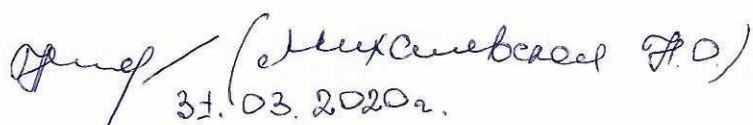 (Михалевская Н.О.)
31.03.2020г.